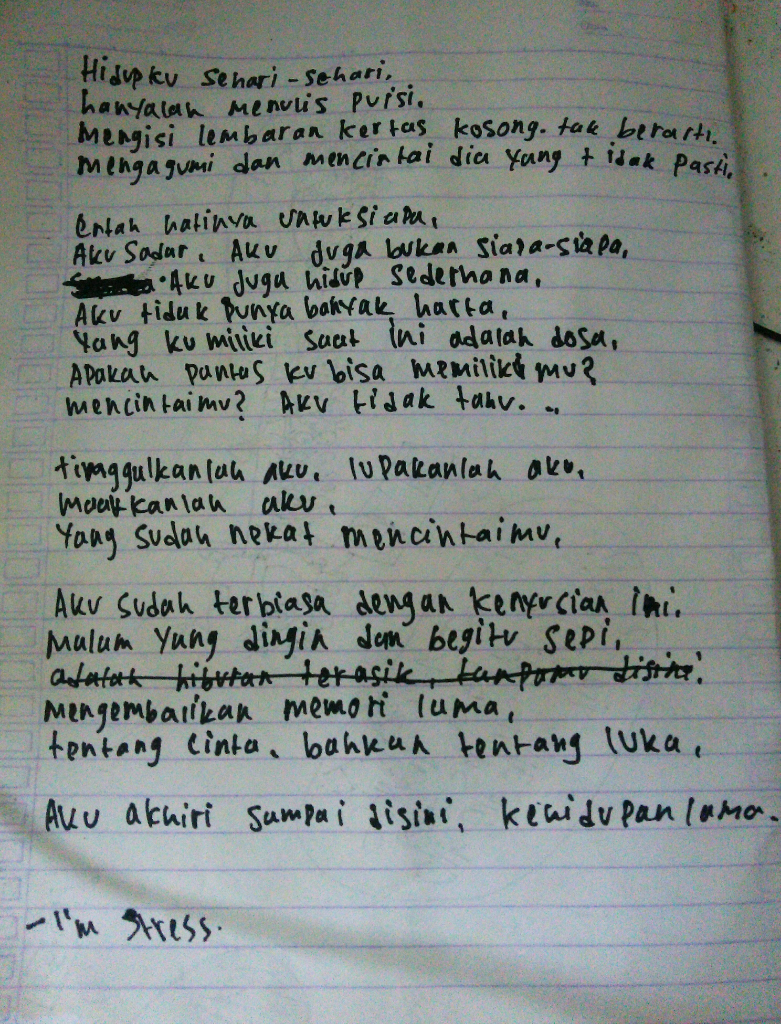 Hidupku sehari-sehari.
hanyalah menulis puisi.
Mengisi lembaran kertas kosong. tak berarti.
Mengagumi dan mencintai dia yang tidak pasti.
Entah hatinya untuk siapa,
Aku Sadar, Aku juga bukan siapa-siapa,
Aku juga hidup sederhana,
Aku tidak punya banyak harta,
Yang ku miliki saat ini adalah dosa,
Apakah pantas ku bisa memiliki mu?
mencintaimu? Aku tidak tahu...
tinggalkanlah aku, lupakanlah aku,
maafkanlah aku,
Yang sudah nekat mencintaimu,
Aku sudah terbiasa dengan kenyucian ini.
Malam yang dingin dan begitu sepi,
adalah hiburan terasik, tanpamu disini.
Mengembalikan memori lama,
tentang cinta, bahkan tentang luka,
Aku akhiri sampai disini, kehidupan lama.
- I'm Stress.